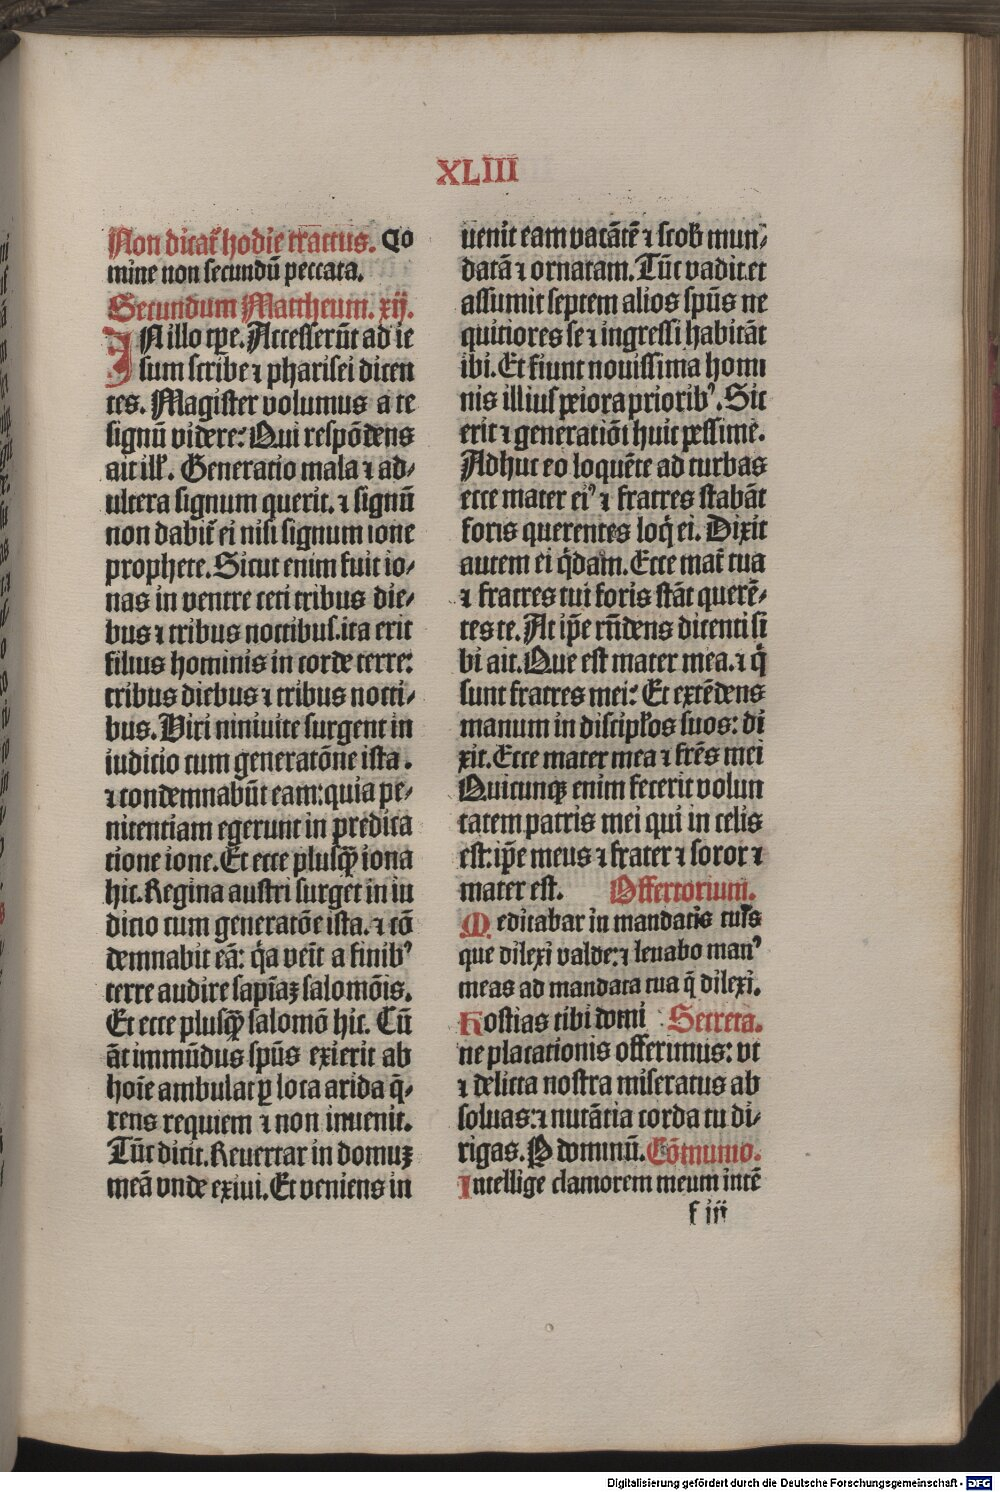 XLIII
Non dicat᷑ hodie tractus. Do
mine non secundū peccata.
Secundum Mattheum. xij.
IN illo tꝑe. Accesserūt ad ie
sum scribe ⁊ pharisei dicen
tes. Magister volumus a te
signū videre: Qui respōdens
ait ill᷑. Generatio mala ⁊ ad⸗
ultera signum querit. ⁊ signū
non dabit᷑ ei nisi signum ione
prophete. Sicut enim fuit io⸗
nas in ventre ceti tribus die⸗
bus ⁊ tribus noctibus. ita erit
filius hominis in corde terre:
tribus diebus ⁊ tribus nocti⸗
bus. Viri niniuite surgent in
iudicio cum generatōne ista.
⁊ condemnabūt eam: quia pe⸗
nitentiam egerunt in predica
tione ione. Et ecce plusqꝫ iona
hic. Regina austri surget in iu
dicio cum generatōe ista. ⁊ cō
demnabit eā: q̄a veīt a finibꝰ
terre audire sapīaꝫ salomōis.
Et ecce plusqꝫ salomō hic. Cū
āt immūdus spūs exierit ab
hoīe ambulat ꝑ loca arida q̄⸗
rens requiem ⁊ non inuenit.
Tūc dicit. Reuertar in domuꝫ
meā vnde exiui. Et veniens in
uenit eam vacātē ⁊ scob᷑ mun⸗
datā ⁊ ornatam. Tūc vadit. et
assumit septem alios spūs ne
quitiores se ⁊ ingressi habitāt
ibi. Et fiunt nouissima homi
nis illius peiora prioribꝰ. Sic
erit ⁊ generatiōi huic pessime.
Adhuc eo loquēte ad turbas
ecce mater eiꝰ ⁊ fratres stabāt
foris querentes loq̄ ei. Dixit
autem ei q̄dam. Ecce mat᷑ tua
⁊ fratres tui foris stāt querē⸗
tes te. At ip̄e rn̄dens dicenti si
bi ait. Que est mater mea. ⁊ q̄
sunt fratres mei: Et extēdens
manum in discipl᷑os suos: di
xit. Ecce mater mea ⁊ fr̄es mei
Quicunqꝫ enim fecerit volun
tatem patris mei qui in celis
est: ip̄e meus ⁊ frater ⁊ soror ⁊
mater est. Offertorium.
Meditabar in mandatis tuis
que dilexi valde: ⁊ leuabo manꝰ
meas ad mandata tua q̄ dilexi.
Hostias tibi domi Secreta.
ne placationis offerimus: vt
⁊ delicta nostra miseratus ab
soluas: ⁊ nutātia corda tu di⸗
rigas. P dominū. Cōmunio.
Intellige clamorem meum intē
f iij
Digitalisierung gefördert durch die Deutsche Forschungsgemeinschaft - DFG